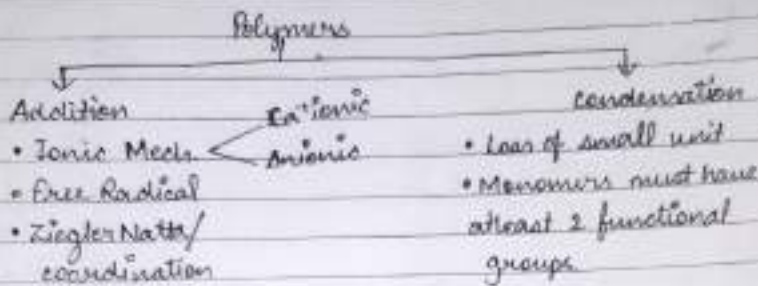 Polymers
Addition
• Ionic Mech.
Cationic
Anionic
• Free Radical
• Ziegler Natta/
coordination
condensation
• Loss of small unit
• Monomers must have
atleast 2 functional
groups